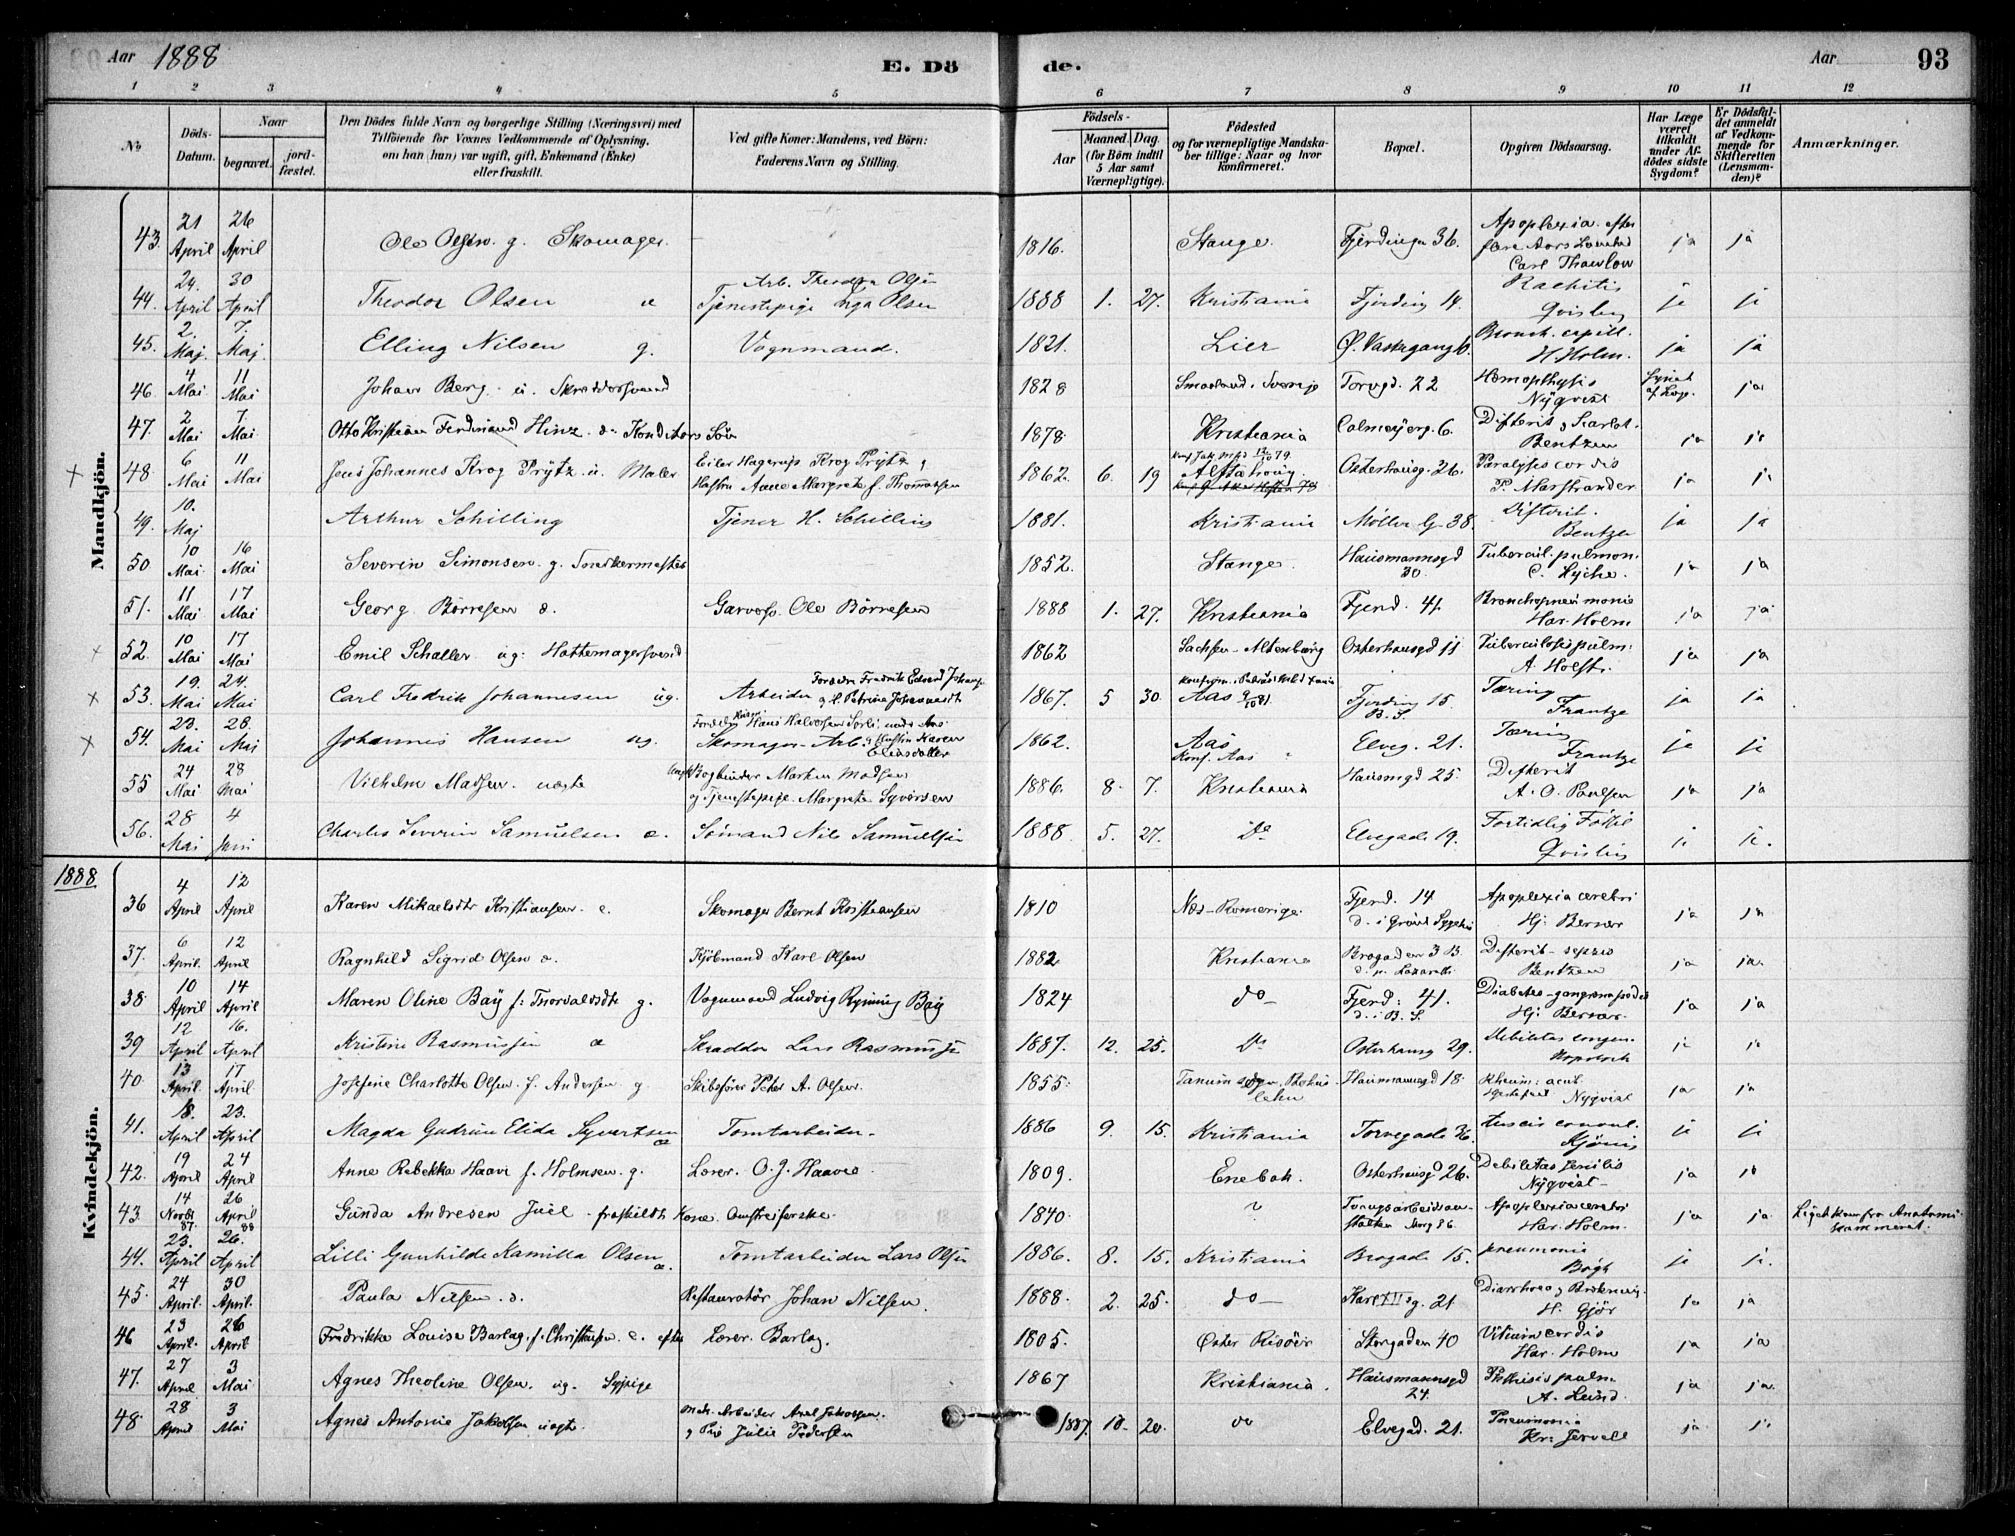 Aar 1888 E. Dö de. Aar 93
1 2 3 4 5 6 7 8 9 10 11 12
No
Döds-Datum.
Naar
begravet. jordfæstet.
Den Dödes fulde Navn og borgerlige Stilling (Næringsvei) med
Tilföiende for Voxnes Vedkommende af Oplysning,
om han (hun) var ugift, gift, Enkemand (Enke)
eller fraskilt.
Ved gifte Koner: Mandens, ved Börn:
Faderens Navn og Stilling.
Födsels-
Aar Maaned. Dag.
(for Börn indtil
5 Aar samt
Værnepligtige).
Födested
og for værnepligtige Mandska-
ber tillige: Naar og hvor
konfirmeret.
Bopæl.
Opgiven Dödsaarsag.
Har Læge
været
tilkaldt
under Af-
dödes sidste
Sygdom?
Er Dödsfal-
det anmeldt
af Vedkom-
mende for
Skifteretten
(Lensman-
den)?
Anmærkninger.
Mandkjön.
43. 21 April 26 April Ole Olsen g. Skomager 1816. Stange. Fjerdingen 36. Apoplexia efter flere Aars Carl Thaulow ja ja
44. 24. April 30 April Theodor Olsen Arb. Theodor Olsen Tjenestepige Olsen 1888 1. 27. Kristiania Fjerding 14. Rachitis Qvisling ja ja
45. 2. Maj. 7. Maj Elling Nilsen g. Vognmand. 1821. Lier Ø. Vaskegang 6. Bronch. capill. H. Holm. ja ja
46. 4 Mai 11 Mai Johan Berg. u. Skræddersvend 1828 Smaaland i Sverige Torvgd. 22 Hæmopthysis Nyqvist ja
47. 2 Mai 7. Mai Otto Kristian Ferdinand Hinz Konditors Søn 1878. Kristiania Calmeyerg. 6. Difterit & Scarlat. Bentzen ja ja
48. 6 Mai 11 Mai Jens Johannes Krog Prÿtz u. Maler Eiler Hagerup Krog Prÿtz & Hustru Anne Margrete f. Thomassen 1862 6. 19 Konf. Osterhausg. 26. Paralysis cordis P. Marstrander ja ja
49. 10. Maj Arthur Schilling Tjener H. Schilling 1881. Kristiania Møller G 38. Difterit. Bentzen ja ja
50 10 Mai 16 Mai Severin Simonsen g. Snedkermester 1852. Stange. Hausmannsgd 30. Tubercul. pulmon. ja ja
51. 11 Mai 17 Mai Georg Børresen Garversv. Ole Børresen 1888 1. 27. Kristiania Fjerd. 41. Bronchopneumonie Har. Holm ja ja
52. 10 Mai 17 Mai Emil Schaller ug: Hattemagersvend 1862 Sachsen-Altenburg Osterhausgd 11 Tuberculosis pulm: A. Holst. ja ja
53. 19. Mai 24. Mai Carl Fredrik Johannesen ug. Arbeider Foreldre Fredrik Edvard & Petrine 1867. 5 30. Aas Fjerding 15. B. S. Tæring Frantze ja ja
54. 23. Mai 28. Mai Johannes Hansen ug. Skomager-Arb. Hans Halvorsen & Hustru Karen Eliasdatter 1862. Aas Konf. Aas Elveg. 21. Tæring Frantze ja ja
55 24 Mai 28 Mai Vilhelm Madsen uægte Bogbinder Martin Madsen og Tjenestepige Margrete Syversen 1886. 8. 7. Kristiania Hausmgd 25. Difterit A. O. Paulsen ja ja
56. 28 Mai 4 Juni Charles Severin Samuelsen Sømand Nils Samuelsen 1888 5. 27. do Elvegade 19. Fortidlig Født Qvisling ja ja.
1888
Kvindekjön.
36 4 April 12 April Karen Mikaelsdtr Kristiansen e. Skomager Bernt Kristiansen 1810 Nes-Romerige Fjerd. 14 d. i Grønl Sygehus Apoplexia cerebri Hj: Berner ja ja
37. 6 April. 12 April Ragnhild Sigrid Olsen Kjøbmand Karl Olsen 1882 Kristiania Brogaden 3 B. Difterit-sepsis Bentzen ja ja.
38. 10 April 14 April Maren Oline Baÿ f: Thorvaldsdtr g. Vognmand Ludvig Ryning Baÿ 1824 do- Fjerd: 41. d. i B. S. Diabetes-gangræna pedis Hj: Berner. ja ja
39 12 April 16. April Kristine Rasmussen Skrædder Lars Rasmussen 1887. 12. 25. Do Osterhausg 29. Debilitas congen. ja ja
40. 13 April. 17 April Josefine Charlotte Olsen f. Andersen g Skibsfører Peter A. Olsen. 1855. Tanum sogn Bohus lehn Hausmannsgd 18. Rheum: acut. Nyqvist ja ja
41. 18. April 23. April Magda Gudrun Elida Syvertsen Tomtarbeider. 1886 9. 15. Kristiania Torvegade 36. tussis convul. ja ja
42. 19 April 24 April Anne Rebekka Haave f. Holmsen g. Lærer. O. J. Haave. 1809. Enebak. Osterhausgd 26. Debilitas senilis Nyqvist- ja ja
43. 14 Novbr 87. 26 April 88 Gunda Andresen Juel - fraskildt Kone. Omstreiferske. 1840 ? Tvangsarbeidsanstalten Storg 86. Apoplexia cerebri Har. Holm ja ja. Liget kom fra Anatomikammeret.
44. 23. April 26. April Lilli Gunhilde Kamilla Olsen Tomtarbeider Lars Olsen 1886. 8. 15. Kristiania Brogade 15. pneumonia Bögh ja ja.
45. 24 April. 30 April. Paula Nilsen Restauratør Johan Nilsen. 1888. 2. 25. do- Karl XII g. 21 Diarrhoea & Brækning H. Gjör ja ja
46 23 April. 26 April Fredrikke Louise Barlag f. Christensen e. efter Lærer. Barlag. 1805. Øster Risöer Storgaden 40 Vitium cordis Har. Holm ja ja
47. 27 April 3 Mai Agnes Theoline Olsen ug. Sypige 1867 Kristiania. Hausmannsgd 24. Phthisis pulm A. Lund. ja ja.
48. 28 April 3 Mai Agnes Antonie Jakobsen uægte. Arbeider Axel Jakobsen. & Pige Julie Pedersen 1887. 10. 20. do Elvegad. 21. Pneumonia Kr: Jervell ja ja